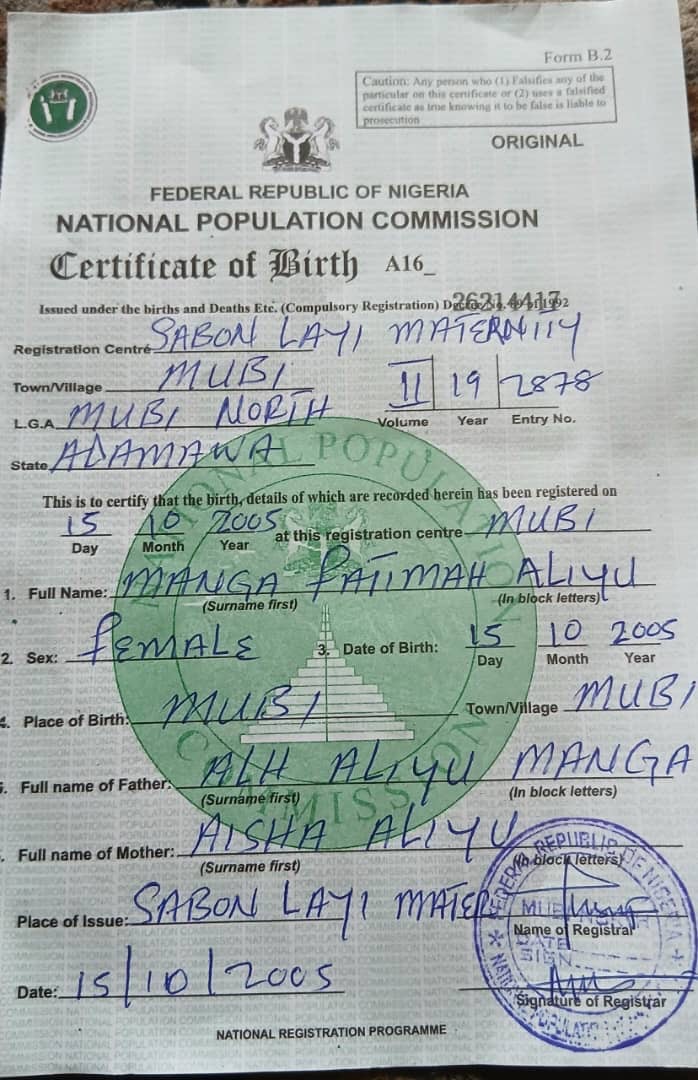 Form B.2
Caution: Any person who (1) Falsifies any of the
particular on this certificate or (2) uses a falsified
certificate as true knowing it to be false is liable to
prosecution
ORIGINAL
FEDERAL REPUBLIC OF NIGERIA
NATIONAL POPULATION COMMISSION
Certificate of Birth A16_
26214417
Issued under the births and Deaths Etc. (Compulsory Registration) 1992
Registration Centre SABON LAYI MATERNITY
Town/Village MUBI
II 19 2878
Volume Year Entry No.
L.G.A MUBI NORTH
State ADAMAWA
This is to certify that the birth, details of which are recorded herein has been registered on
15 10 2005 at this registration centre MUBI
Day Month Year
1. Full Name: MANGA FATIMAH ALIYU
(Surname first) (In block letters)
2. Sex: FEMALE 3. Date of Birth: 15 10 2005
Day Month Year
4. Place of Birth: MUBI Town/Village MUBI
. Full name of Father: ALH ALIYU MANGA
(Surname first) (In block letters)
. Full name of Mother: AISHA ALIYU
(Surname first) (In block letters)
Place of Issue: SABON LAYI MATER
Name of Registrar
Date: 15/10/2005
Signature of Registrar
NATIONAL REGISTRATION PROGRAMME
NATIONAL POPULATION COMMISSION
FEDERAL REPUBLIC OF NIGERIA
DATE
SIGN